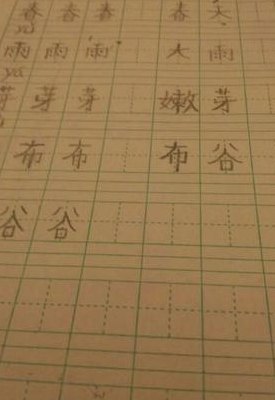 春 春 春 春 天
yǔ
雨 雨 雨 大 雨
yá
芽 芽 芽 嫩 芽
布 布 布 谷
谷 谷